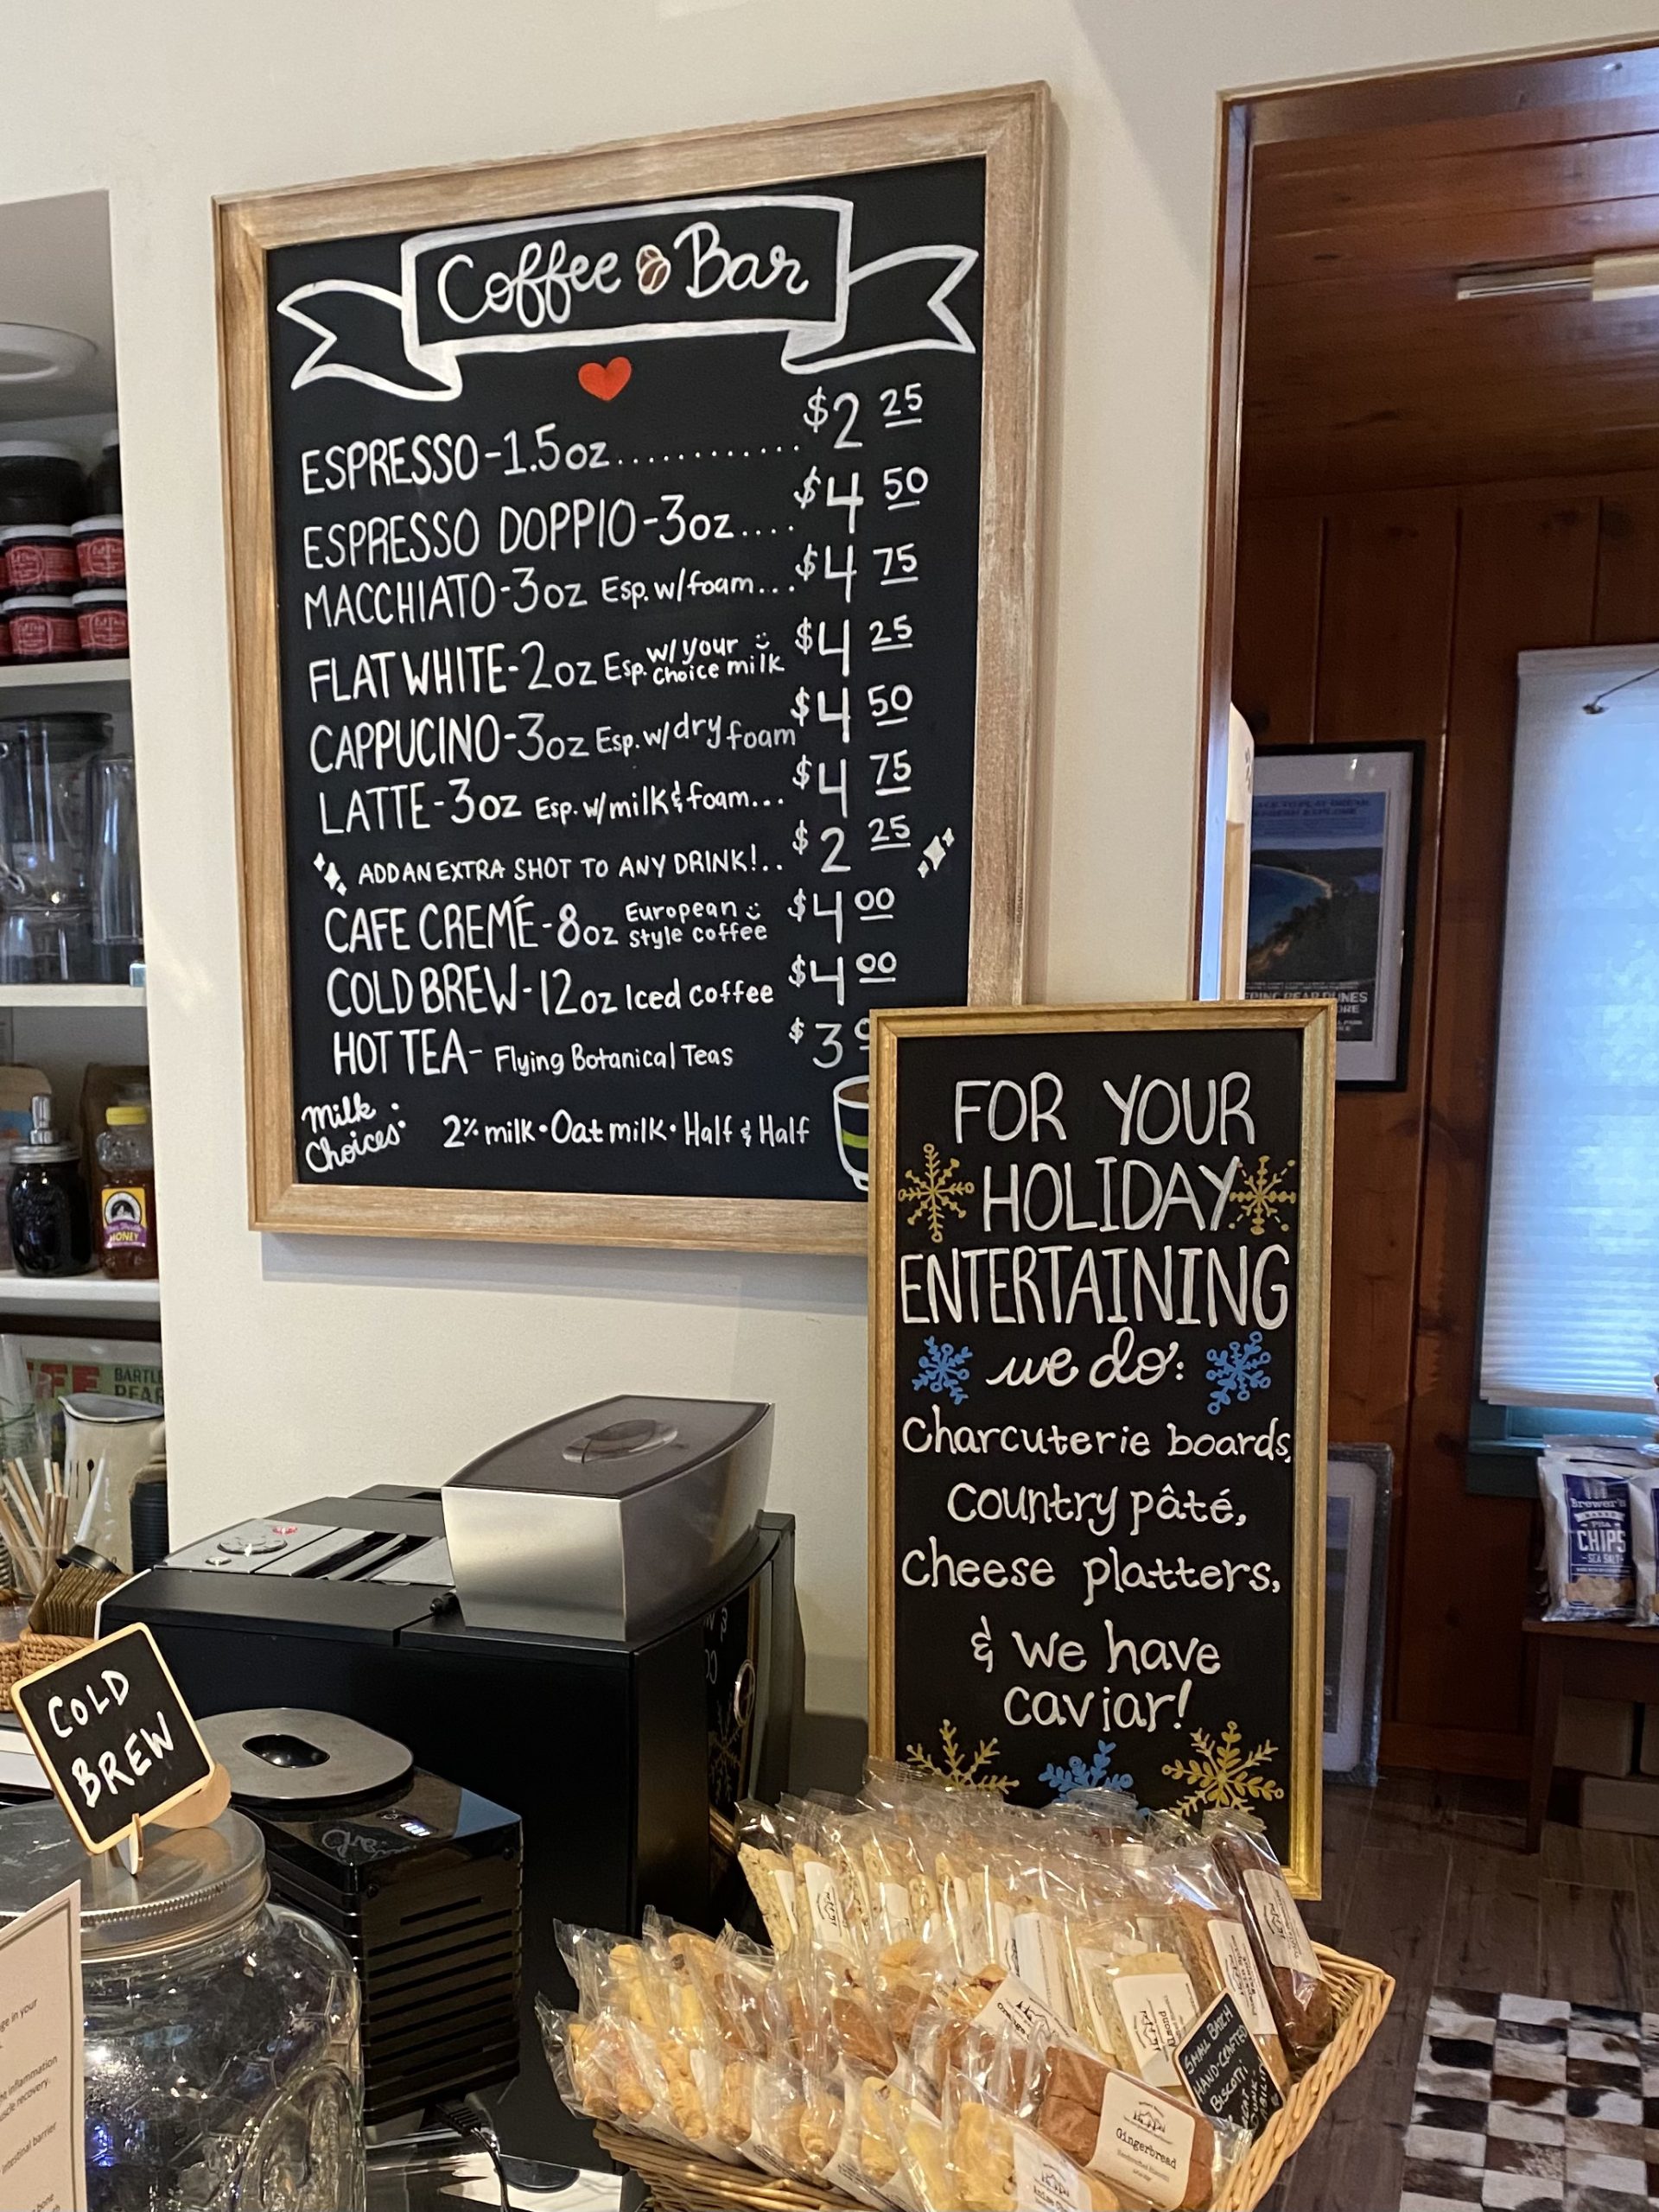 Coffee Bar
ESPRESSO-1.5oz............ $2 25
ESPRESSO DOPPIO-3oz.... $4 50
MACCHIATO-3oz Esp. w/foam... $4 75
FLAT WHITE-2oz Esp. w/your choice milk $4 25
CAPPUCINO-3oz Esp. w/dry foam $4 50
LATTE-3oz Esp. w/milk & foam... $4 75
ADD AN EXTRA SHOT TO ANY DRINK!.. $2 25
CAFE CREMÉ-8oz European style coffee $4 00
COLD BREW-12oz Iced coffee $4 00
HOT TEA- Flying Botanical Teas $3
Milk Choices: 2% milk • Oat milk • Half & Half
FOR YOUR
HOLIDAY
ENTERTAINING
we do:
Charcuterie boards,
Country pâté,
Cheese platters,
& we have
caviar!
HONEY
BARTLE
PEAR
COLD
BREW
Brewer's
PITA
CHIPS
SEA SALT
SMALL BATCH
HAND-CRAFTED
BISCOTTI
Gingerbread
ge in your
ht inflammation
uscle recovery.
intestinal barrier